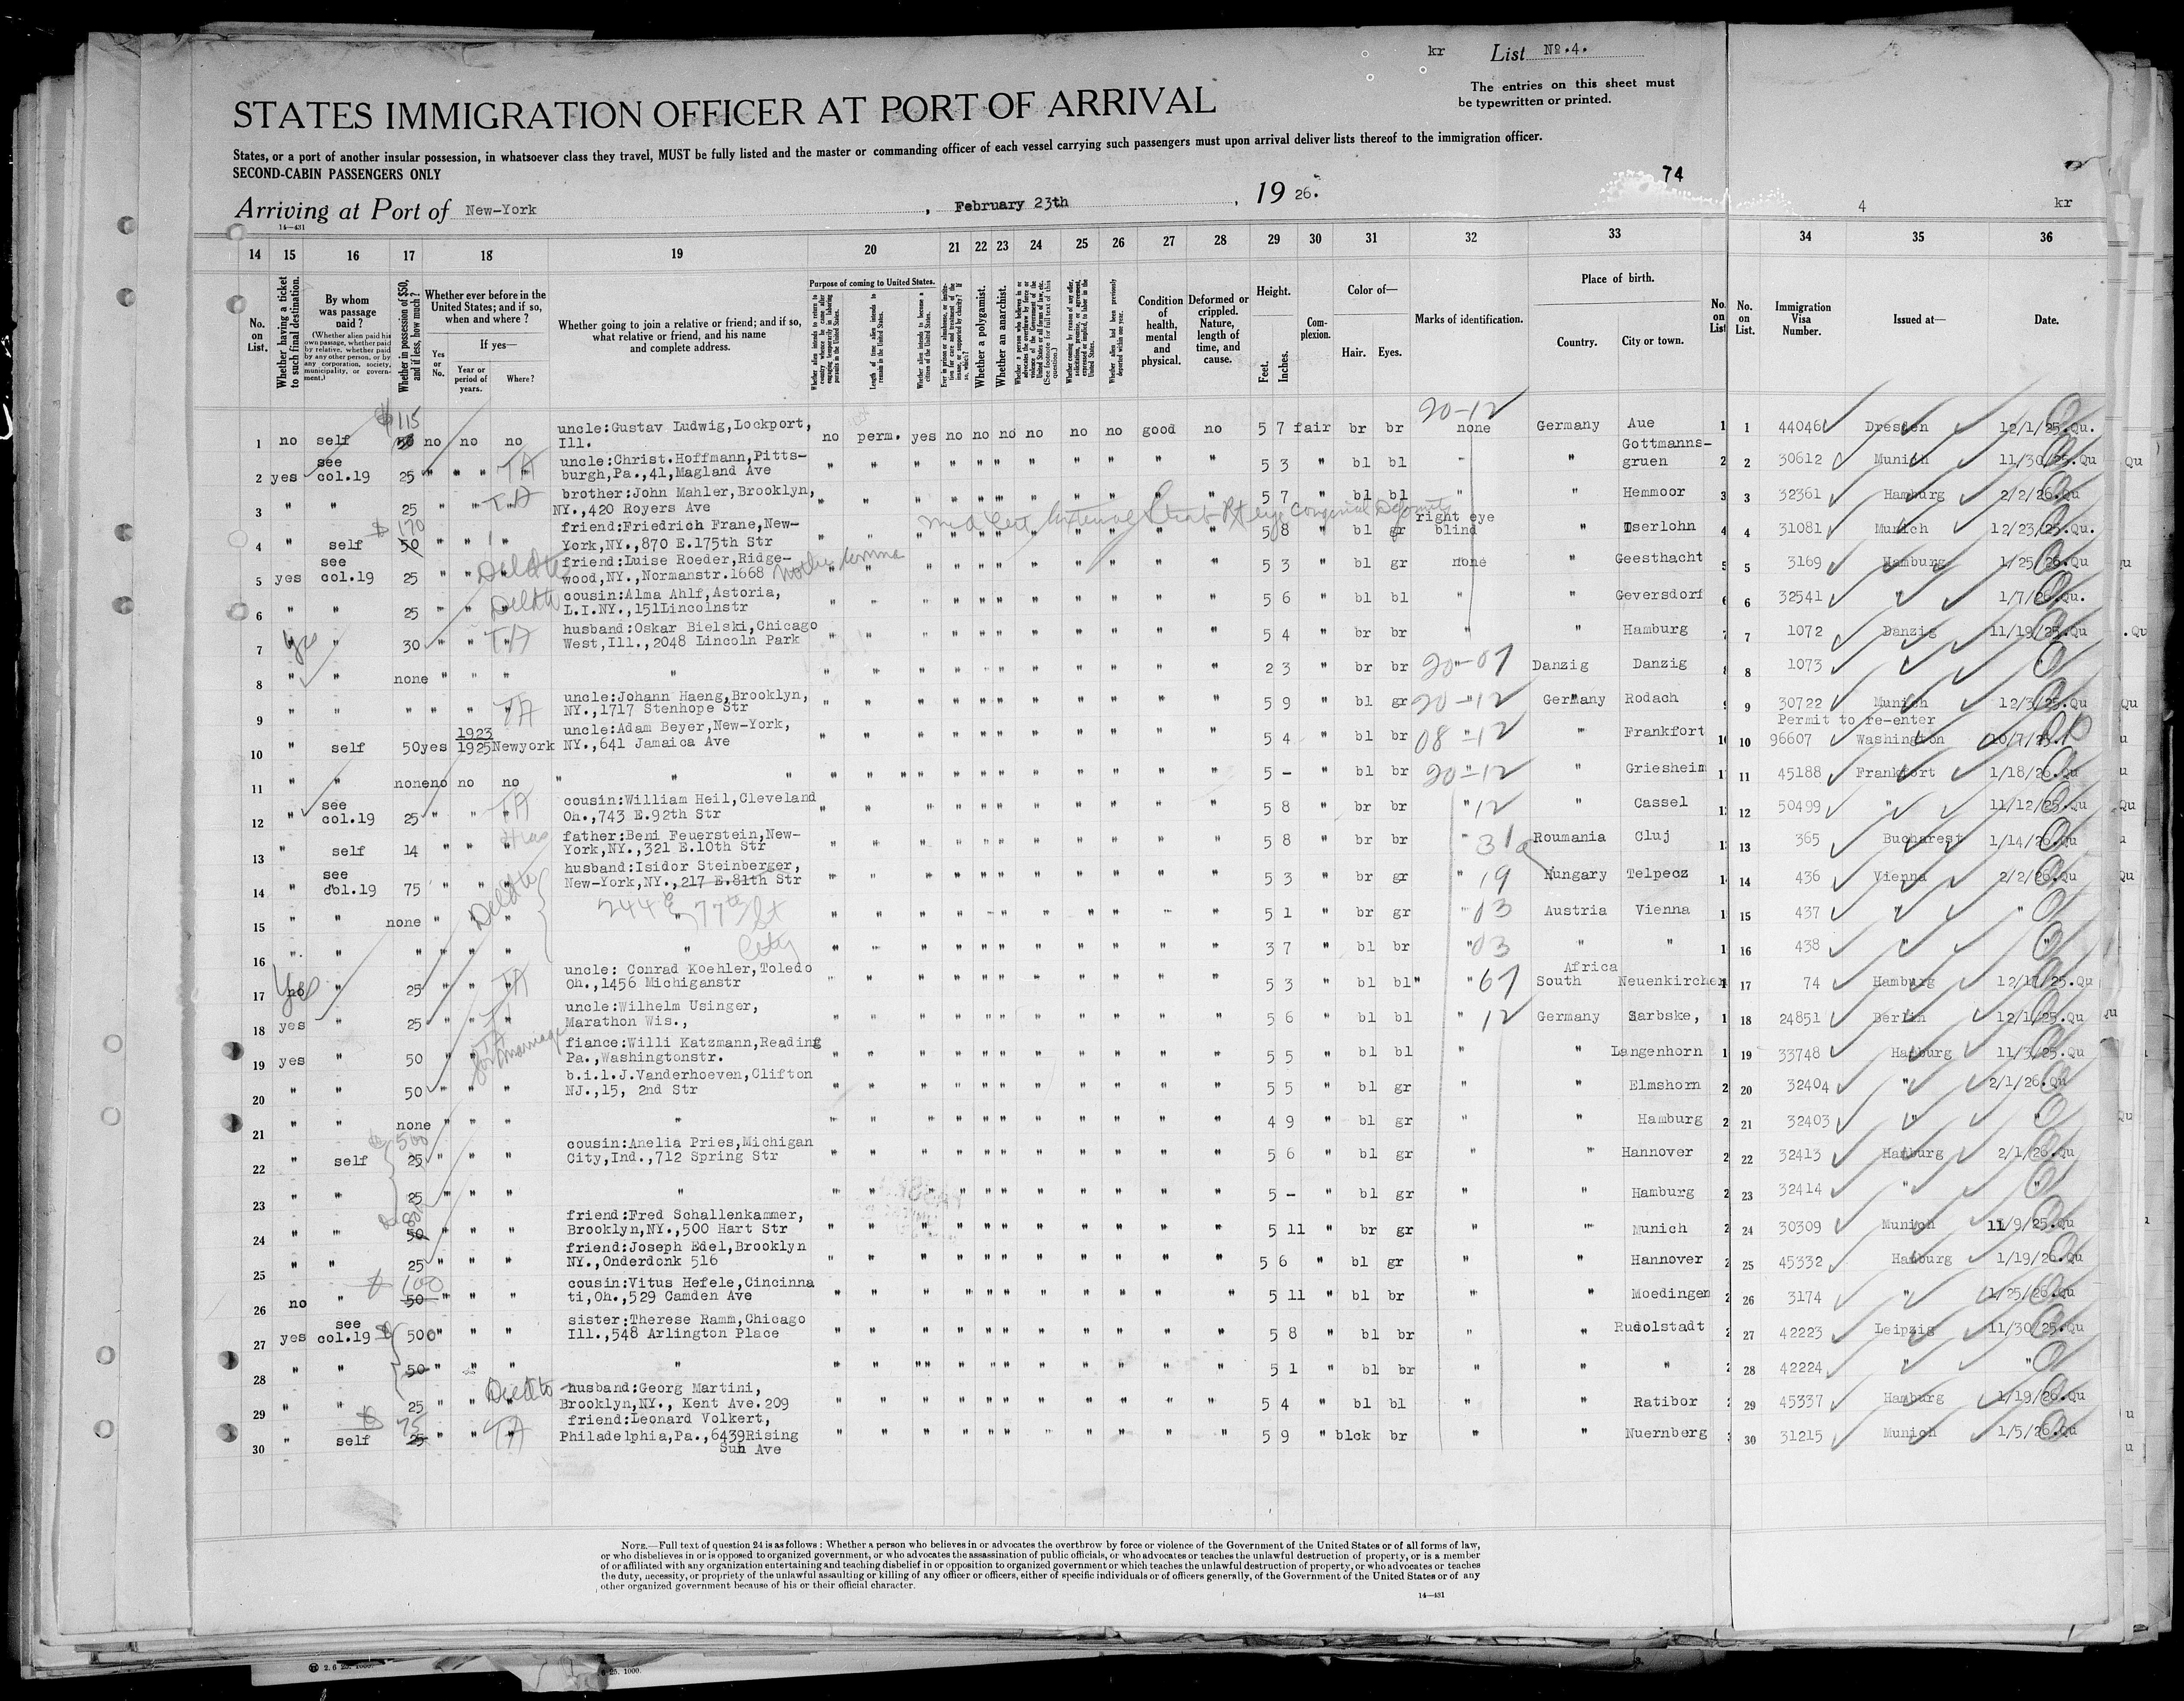 kr List No.4.
The entries on this sheet must
be typewritten or printed.
STATES IMMIGRATION OFFICER AT PORT OF ARRIVAL
States, or a port of another insular possession, in whatsoever class they travel, MUST be fully listed and the master or commanding officer of each vessel carrying such passengers must upon arrival deliver lists thereof to the immigration officer.
SECOND-CABIN PASSENGERS ONLY
74
Arriving at Port of New-York, February 23th, 19 26.
4 kr
14—431
14 15 16 17 18 19 20 21 22 23 24 25 26 27 28 29 30 31 32 33 34 35 36
No. on List.
Whether having a ticket to such final destination.
By whom was passage paid?
(Whether alien paid his own passage, whether paid by relative, whether paid by any other person, or by any corporation, society, municipality, or government.)
Whether in possession of $50, and if less, how much?
Whether ever before in the United States; and if so, when and where?
Yes or No.
If yes—
Year or period of years.
Where?
Whether going to join a relative or friend; and if so, what relative or friend, and his name and complete address.
Purpose of coming to United States.
Whether alien intends to return to country whence he came after engaging temporarily in laboring pursuits in the United States.
Length of time alien intends to remain in the United States.
Whether alien intends to become a citizen of the United States.
Whether a polygamist.
Whether an anarchist.
Condition of health, mental and physical.
Deformed or crippled. Nature, length of time, and cause.
Height.
Feet. Inches.
Complexion.
Color of—
Hair. Eyes.
Marks of identification.
Place of birth.
Country. City or town.
No. on List
No. on List.
Immigration Visa Number.
Issued at—
Date.
$ 115 20-12
1 no self 50 no no no uncle:Gustav Ludwig,Lockport, Ill. no perm. yes no no no no no no good no 5 7 fair br br none Germany Aue 1 1 44046 Dresden 12/1/25.Qu.
2 yes see col.19 25 " " " TA uncle:Christ.Hoffmann,Pittsburgh,Pa.,41,Magland Ave " " " " " " " " " " " 5 3 " bl bl " " Gottmannsgruen 2 2 30612 Munich 11/30/25.Qu
3 " " 25 " " " TA brother:John Mahler,Brooklyn, NY.,420 Royers Ave " " 5 7 " bl bl " " Hemmoor 3 3 32361 Hamburg 2/2/26.Qu
4 " self $ 170 50 " " friend:Friedrich Frane,New-York,NY.,870 E.175th Str " " 5 8 " bl gr right eye blind " Iserlohn 4 4 31081 Munich 12/23/25.Qu.
5 yes see col.19 25 " " " friend:Luise Roeder,Ridgewood,NY.,Normanstr.1668 " " 5 3 " bl gr none " Geesthacht 5 5 3169 Hamburg 1/25/26.Qu
6 " " 25 " " " cousin:Alma Ahlf,Astoria, L.I.NY.,151Lincolnstr " " 5 6 " bl bl " " Geversdorf 6 6 32541 " 1/7/26.Qu.
7 " yes " 30 " " " TA husband:Oskar Bielski,Chicago West,Ill.,2048 Lincoln Park " " 5 4 " br br " " Hamburg 7 7 1072 Danzig 11/19/25.Qu
8 " " none " " " " " " 2 3 " br br " 20-07 Danzig Danzig 8 8 1073 " "
9 " " " " " " TA uncle:Johann Haeng,Brooklyn, NY.,1717 Stenhope Str " " 5 9 " bl gr " 20-12 Germany Rodach 9 9 30722 Munich 12/3/25.Qu
Permit to re-enter
10 " self 50 yes 1923 1925 Newyork uncle:Adam Beyer,New-York, NY.,641 Jamaica Ave " " 5 4 " bl br " 08-12 " Frankfort 10 10 96607 Washington 10/7/25.
11 " " none no no no " " " 5 - " bl br " 20-12 " Griesheim 11 11 45188 Frankfort 1/18/26.Qu
12 " see col.19 25 " " " TA cousin:William Heil,Cleveland Oh.,743 E.92th Str " " 5 8 " br br " 12 " Cassel 12 12 50499 " 11/12/25.Qu
13 " self 14 " " " father:Beni Feuerstein,New-York,NY.,321 E.10th Str " " 5 8 " br br " 31 Roumania Cluj 13 13 365 Bucharest 1/14/26.Qu
14 " see col.19 75 " " " husband:Isidor Steinberger, New-York,NY.,217 E.81th Str " " 5 3 " br gr " 19 Hungary Telpecz 14 14 436 Vienna 2/2/26.Qu
244 E 77th St
City
15 " " none " " " " " " 5 1 " br gr " 03 Austria Vienna 15 437 " "
16 " " " " " " " " " 3 7 " bl br " 03 " " 16 438 " "
17 no Yes " 25 " " " TA uncle: Conrad Koehler,Toledo Oh.,1456 Michiganstr " " 5 3 " bl bl " " 67 South Africa Neuenkirchen 17 74 Hamburg 12/17/25.Qu
18 yes " 25 " " " uncle:Wilhelm Usinger, Marathon Wis., " " 5 6 " bl bl " 12 Germany Sarbske, 18 24851 Berlin 12/1/25.Qu
19 yes " 50 " " TA for marriage fiance:Willi Katzmann,Reading Pa.,Washingtonstr. " " 5 5 " bl bl " " Langenhorn 19 33748 Hamburg 11/3/25.Qu
20 " " 50 " " " b.i.l.J.Vanderhoeven,Clifton NJ.,15, 2nd Str " " 5 5 " bl gr " " Elmshorn 20 32404 " 2/1/26.Qu
21 " " none " " " " " " 4 9 " bl gr " " Hamburg 21 32403 " "
22 " self $ 500 25 " " " cousin:Anelia Pries,Michigan City,Ind.,712 Spring Str " " 5 6 " bl gr " " Hannover 22 32413 Hamburg 2/1/26.Qu
23 " " 25 " " " " " " 5 - " bl gr " " Hamburg 23 32414 " "
24 " " 50 " " " friend:Fred Schallenkammer, Brooklyn,NY.,500 Hart Str " " 5 11 " br gr " " Munich 24 30309 Munich 11/9/25.Qu
25 " " 25 " " " friend:Joseph Edel,Brooklyn NY.,Onderdonk 516 " " 5 6 " bl gr " " Hannover 25 45332 Hamburg 1/19/26.Qu
26 no " $ 100 50 " " " cousin:Vitus Hefele,Cincinnati,Oh.,529 Camden Ave " " 5 11 " bl br " " Moedingen 26 3174 " 1/25/26.Qu
27 yes see col.19 $ 500 " " " sister:Therese Ramm,Chicago Ill.,548 Arlington Place " " 5 8 " bl br " " Rudolstadt 27 42223 Leipzig 11/30/25.Qu
28 " " 50 " " " " " " 5 1 " bl br " " " 28 42224 " "
29 " " 25 " " " husband:Georg Martini, Brooklyn,NY., Kent Ave.209 " " 5 4 " bl bl " " Ratibor 29 45337 Hamburg 1/19/26.Qu
30 " self $ 75 25 " " " TA friend:Leonard Volkert, Philadelphia,Pa.,6439Rising Sun Ave " " 5 9 " blck br " " Nuernberg 30 31215 Munich 1/5/26.Qu
NOTE.—Full text of question 24 is as follows: Whether a person who believes in or advocates the overthrow by force or violence of the Government of the United States or of all forms of law,
or who disbelieves in or is opposed to organized government, or who advocates the assassination of public officials, or who advocates or teaches the unlawful destruction of property, or is a member
of or affiliated with any organization entertaining and teaching disbelief in or opposition to organized government or which teaches the unlawful destruction of property, or who advocates or teaches
the duty, necessity, or propriety of the unlawful assaulting or killing of any officer or officers, either of specific individuals or of officers generally, of the Government of the United States or of any
other organized government because of his or their official character.
14—431